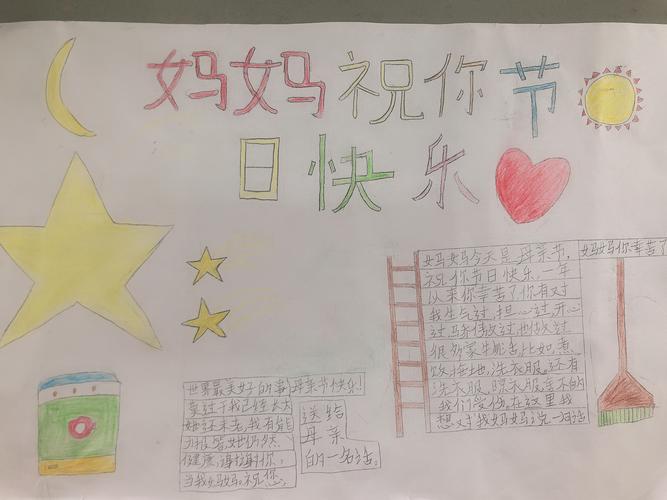 妈妈祝你节
日快乐
妈妈今天是母亲节,
祝你节日快乐,一年
以来你幸苦了你有对
我生气过,担心过,开心
过骄傲过也做过
很多家牛务比如,煮
饭拖地,洗衣服,还有
洗衣服,晒衣服亲不的
我们爱你,在这里我
想对我妈妈说一句话
妈妈你幸苦了
世界最美好的事母亲节快乐!
莫过于我已经长大
她还未老,我有能
力报答她仍然
健康,谢谢你,
当我妈妈。祝您,
送给
母亲
的一名话。